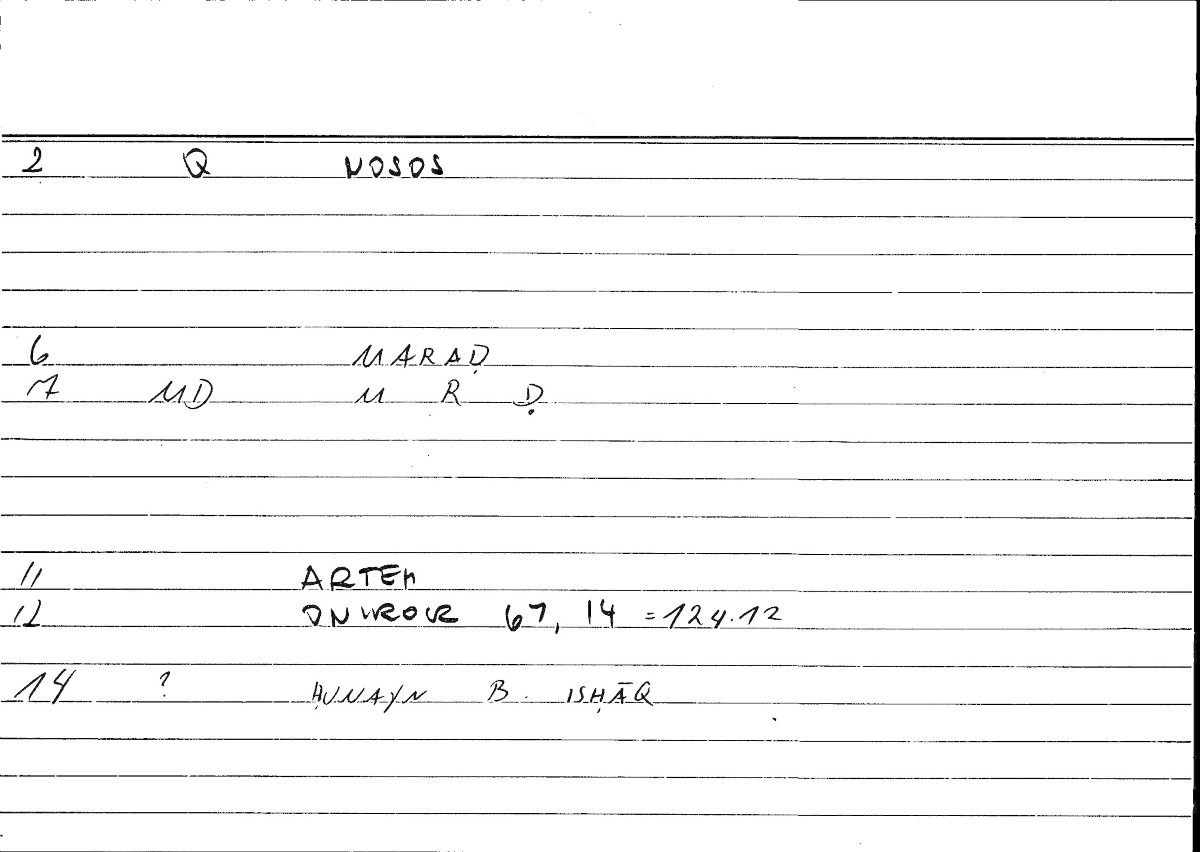 2 Q NOSOS
6 MARAḌ
7 MD M R Ḍ
11 ARTEM
12 ONIROCR 67, 14 = 124.12
14 ? ḤUNAYN B. ISḤĀQ